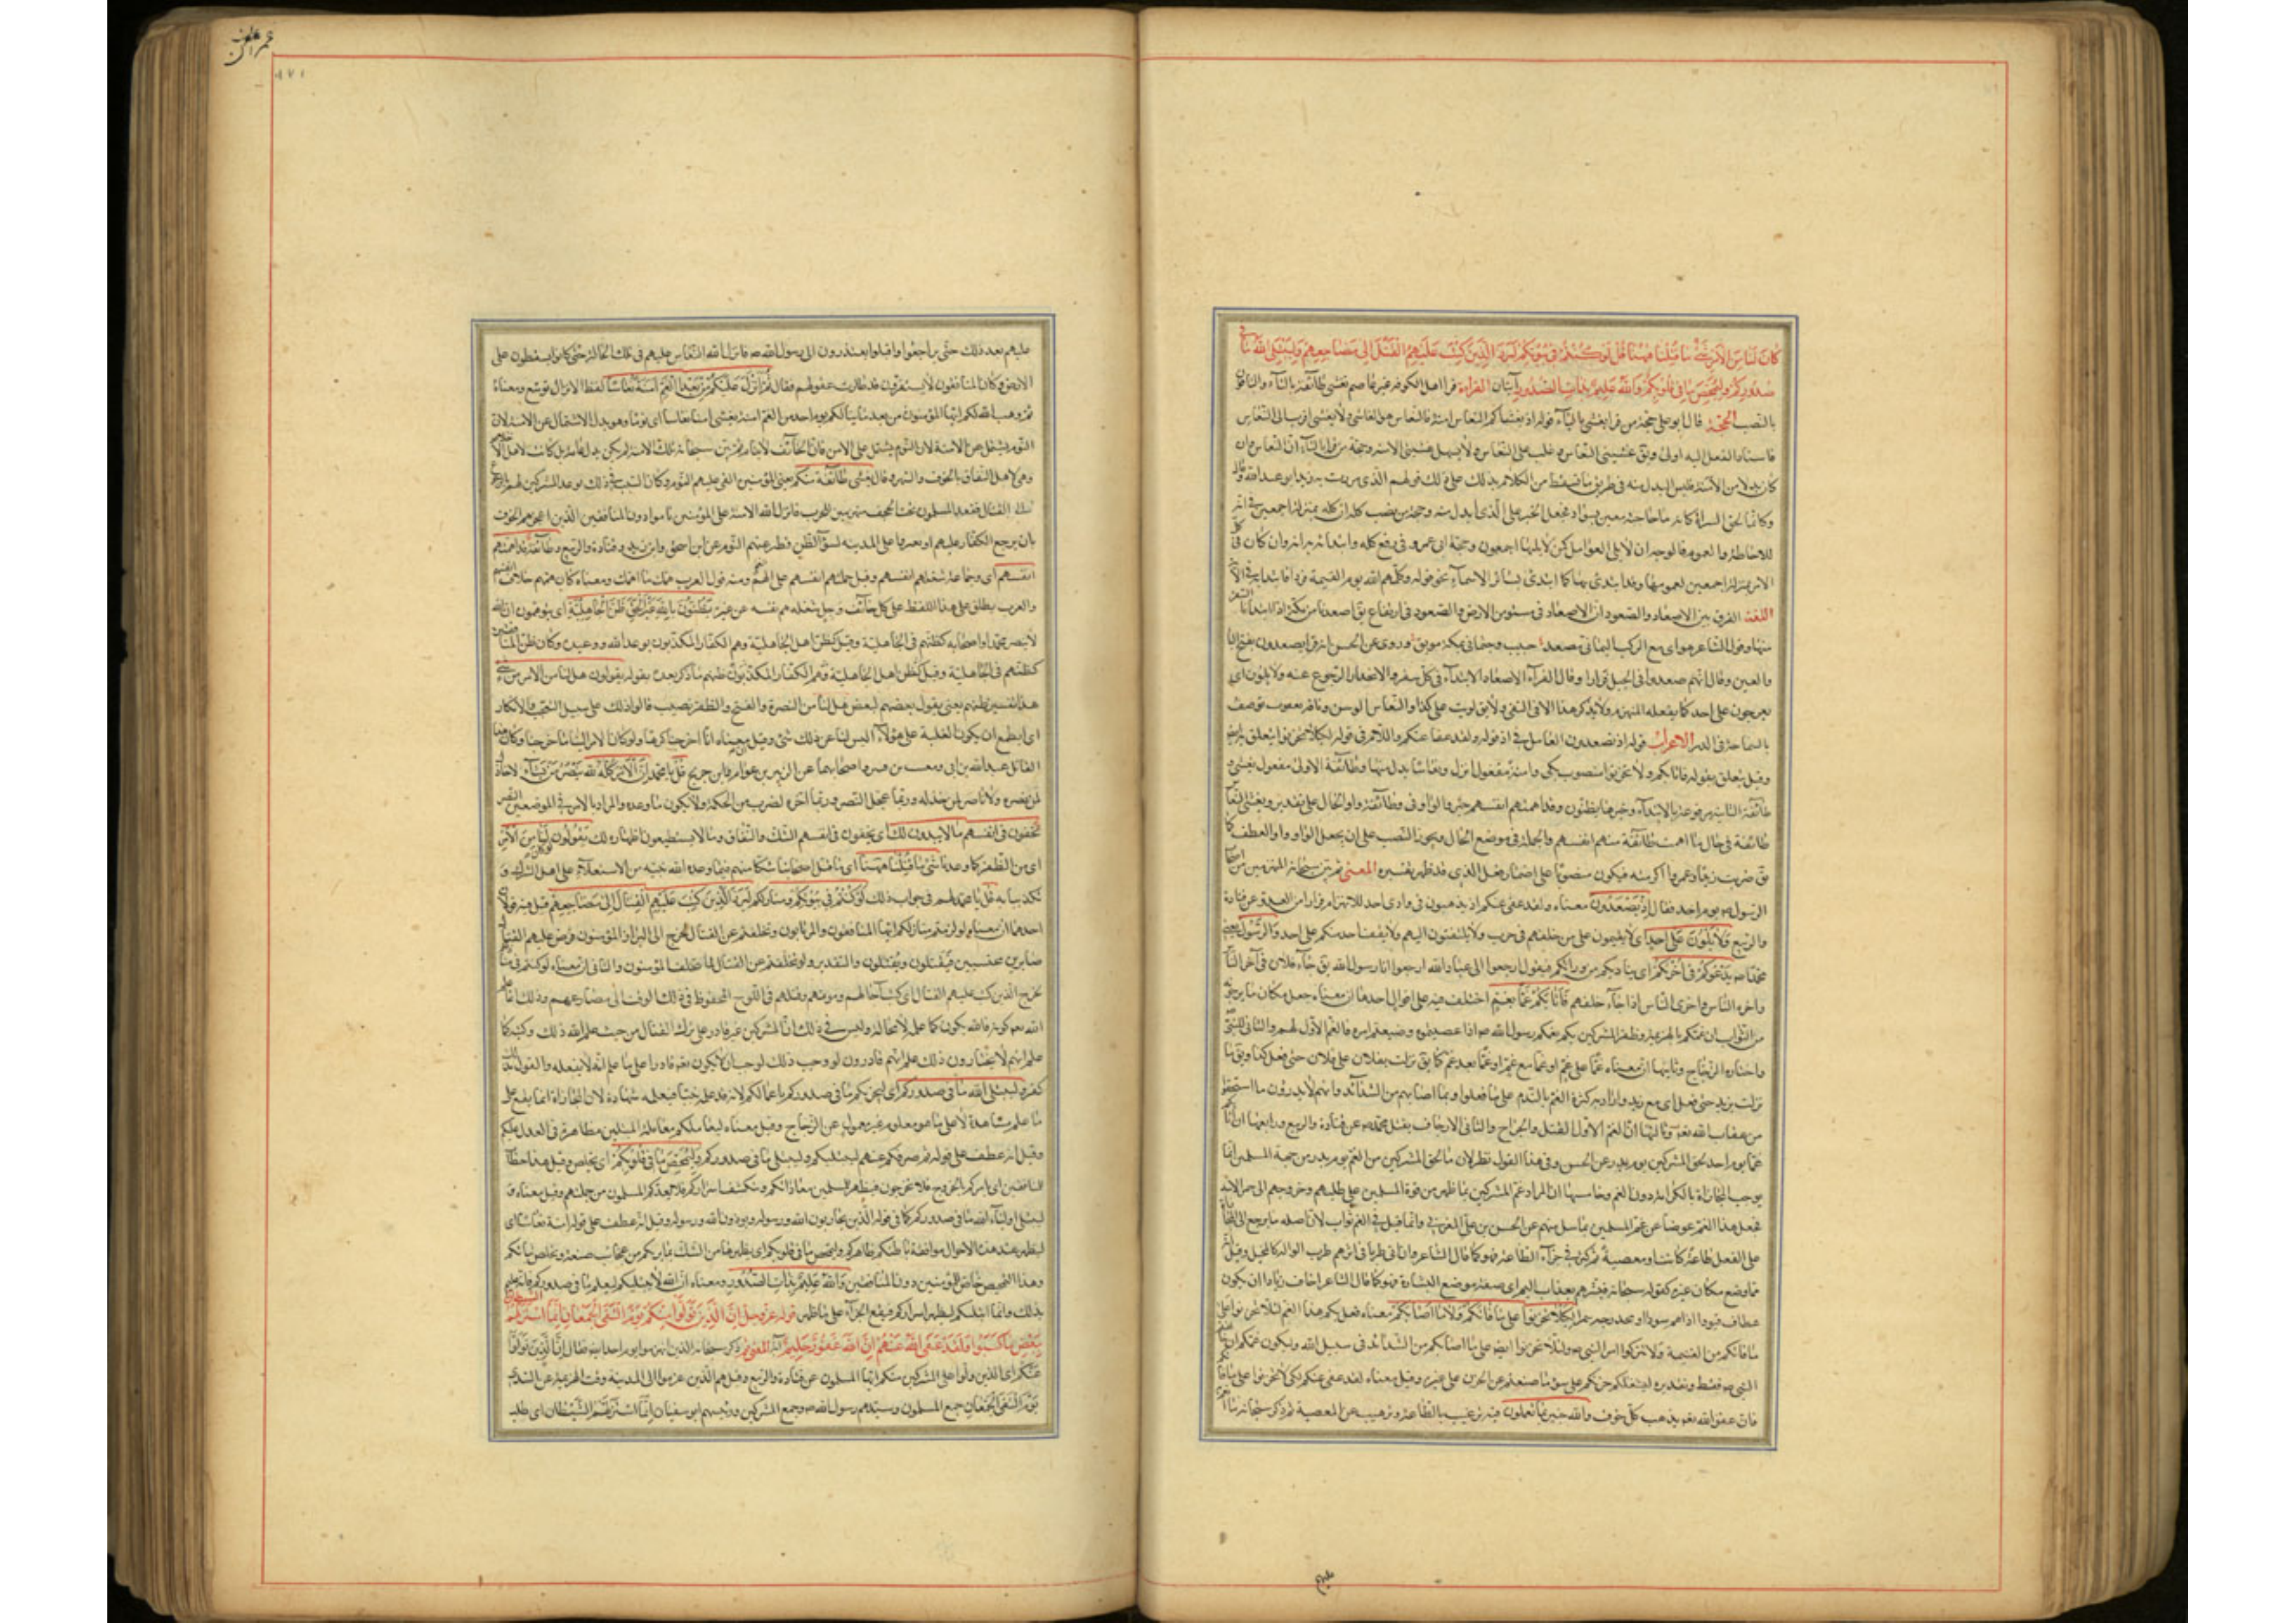 كان لنا من الامر شئ ما قتلنا ههنا قل لو كنتم في بيوتكم لبرز الذين كتب عليهم القتل الى مضاجعهم وليبتلى الله ما في
صدوركم وليمحص ما في قلوبكم والله عليم بذات الصدور آيتان القراءة قرا اهل الكوفة غير عاصم تغشى طائفة بالتاء والباقون
بالنصب الحجة قال ابو على حجة من قرا يغشى بالياء قوله اذ يغشاكم النعاس امنة فالنعاس هو الغاشى ولأن يغشى اقرب الى النعاس
فاسناد الفعل اليه اولى ويق غشينى النعاس وغلب على النعاس ولا يسهل غشينى الامنة وحجة من قرا بالتاء ان النعاس وان
كان بدلا من الامنة فليس المبدل منه في طريق ما يسقط من الكلام يدلك على ذلك قولهم الذى مررت به زيد ابو عبد الله وقال
وكانه لحق السراة كانه ما حاجبيه معين بسواد فجعل الخبر على الذى ابدل منه وحجة من نصب كله ان كله بمنزلة اجمعين في انه
للاحاطة والعموم فالوجه ان لا يلى العوامل كما لا يليها اجمعون وحجة ابى عمرو في رفع كله وابتدائه به انه وان كان في
الامر بمنزلة اجمعين لعمومها وقد ابتدئ بها كما ابتدئ بسائر الاسماء نحو قوله وكلهم آتيه يوم القيمة فردا
اللغة الفرق بين الاصعاد والصعود ان الاصعاد في مستوى من الارض والصعود في ارتفاع يق اصعدنا من مكة اذا ابتدانا
منها وقول الشاعر هواى مع الركب اليمانين مصعد جنيب وجثمانى بمكة موثق وروى عن الحسن انه قرا تصعدون بفتح التا
والعين وقال انهم صعدوا في الجبل فرارا وقال الفراء الاصعاد الابتداء في كل سفر والانحدار الرجوع عنه ولا يلوون اى
يعرجون على احد كما يفعله المنهزم ولا يذكر هذا الا في النفى لا يق لويت على كذا والنعاس الوسن وناقة نعوس توصف
بالسماحة في الدر الاعراب قوله اذ تصعدون العامل في اذ قوله ولقد عفا عنكم واللام في قوله لكيلا تحزنوا يتعلق بعفا
وقيل يتعلق بقوله فاثابكم ولا تحزنوا منصوب بكى وامنة مفعول انزل ونعاسا بدل منها وطائفة الاولى مفعول يغشى و
طائفة الثانية مرفوعة بالابتداء وخبرها يظنون وقد اهمتهم انفسهم خبر والواو في وطائفة واو الحال على تقدير ويغشى النعا
طائفة في حال ما اهمت طائفة منهم انفسهم والجملة في موضع الحال ويجوز النصب على ان يجعل الواو واو العطف كما
يق ضربت زيدا وعمروا اكرمته فيكون منصوبا على اضمار فعل الذى قد ظهر تفسيره المعنى ثم بين سبحانه المنهزمين من اصحاب
الرسول ص يوم احد فقال اذ تصعدون معناه ولقد عفى عنكم اذ تذهبون في وادى احد للانهزام فرارا من العدو عن قتادة
والربيع ولا تلوون على احد اى لا تقيمون على من خلفهم في حرب ولا تلتفتون اليهم ولا يقف احد منكم على احد والرسول يعنى
محمدا ص يدعوكم في اخريكم اى يناديكم من ورائكم فيقول ارجعوا الى عباد الله ارجعوا انا رسول الله يق جاء فلان في آخر الناس
واخرة الناس واخرى الناس اذا جاء خلفهم فاثابكم غما بغم اختلف فيه على اقوال احدها ان معناه جعل مكان ما يرجونه
من الثواب ان غمكم بالهزيمة وظفر المشركين بكم بغمكم رسول الله ص اذا عصيتموه وضيعتم امره فالغم الاول لهم والثانى للنبى
واختاره الزجاج وثانيها ان معناه غما على غم او غما مع غم او غما بعد غم كما يق نزلت بفلان على فلان حتى فعل كذا ويق ما
نزلت بزيد حتى فعل اى مع زيد واراد به كثرة الغم بالندم على ما فعلوا وبما اصابهم من الشدائد وانهم لا يدرون ما استحقوا
من عقاب الله تعم وثالثها ان الغم الاول القتل والجراح والثانى الارجاف بقتل محمد ص عن قتادة والربيع ورابعها اثابكم
غما يوم احد لحق المشركين يوم بدر عن الحسن وفى هذا القول نظر لان ما لحق المشركين من الغم يوم بدر من جهة المسلمين انما
يوجب المجازاة بالكرامة دون الغم وخامسها ان المراد غم المشركين بما ظهر من قوة المسلمين على طلبهم وخروجهم الى حمراء الاسد
فجعل هذا الغم عوضا عن غم المسلمين بما سل منهم عن الحسن بن على المغربى وانما قيل في الغم ثواب لان اصله ما يرجع الى المجازاة
على الفعل طاعة كانت او معصية ثم كثر في جزاء الطاعة فهو كما قال الشاعر وارانى طربا في اثرهم طرب الواله او كالمختبل وقيل انه
مما وضع مكان غيره كقوله سبحانه فبشرهم بعذاب اليم اى ضعه موضع البشارة فهو كما قال الشاعر اخاف زيادا ان يكون
عطاؤه اداهم سودا او محدرجة سمرا لكيلا تحزنوا على ما فاتكم ولا ما اصابكم معناه فعل بكم هذا الغم لئلا تحزنوا على
ما فاتكم من الغنيمة ولا تتركوا امر النبى ص ولئلا تحزنوا ايضا على ما اصابكم من الشدائد في سبيل الله وليكون غمكم
النبى ص فقط وتقديره ليشغلكم حزنكم على سوء ما صنعتم عن الحزن على غيره وقيل معناه لقد عفى عنكم لكى لا تحزنوا على ما فاتكم
فان عفو الله تعم يذهب كل خوف والله خبير بما تعملون فيه ترغيب بالطاعة وترهيب عن المعصية ثم ذكر سبحانه ما انعم
عليهم
عمران
عليهم بعد ذلك حتى تراجعوا واقبلوا يعتذرون الى رسول الله ص فانزل الله النعاس عليهم في تلك الحالة حتى كانوا يسقطون على
الارض وكان المنافقون لا يستقرون قد طارت عقولهم فقال ثم انزل عليكم من بعد الغم امنة نعاسا لفظ الانزال توسع ومعناه
ثم وهب الله لكم ايها المؤمنون من بعد ما ينالكم يوم احد من الغم امنة يعنى امنا نعاسا اى نوما وهو بدل الاشتمال عن الامنة لان
النوم يشتمل على الامنة لان النوم يشتمل على الامن فان الخائف لا ينام ثم بين سبحانه ان تلك الامنة لم يكن عامة بل كانت لاهل الاخلاص
وهى لاهل النفاق بالخوف والسهر وقال يغشى طائفة منكم يعنى المؤمنين القى عليهم النوم وكان السبب في ذلك توعد المشركين لهم بالرجوع
الى القتال فقعد المسلمون تحت الحجف متهيئين للحرب فانزل الله الامنة على المؤمنين ناموا دون المنافقين الذين ازعجهم الخوف
بان يرجع الكفار عليهم او يغيروا على المدينة لسوء الظن فطير عنهم النوم عن ابن اسحق وابن زيد وقتادة والربيع وطائفة قد اهمتهم
انفسهم اى وجماعة شغلهم انفسهم وقيل حملتهم انفسهم على الهم ومنه قول العرب همك ما اهمك ومعناه كان همهم خلاص انفسهم
والعرب يطلق على هذا اللفظ على كل خائف وجل شغله هم نفسه عن غيره يظنون بالله غير الحق ظن الجاهلية اى يتوهمون ان الله
لا ينصر محمدا واصحابه كظنهم في الجاهلية وقيل كظن اهل الجاهلية وهم الكفار المكذبون بوعد الله ووعيده وكان ظن المنافقين
كظنهم في الجاهلية وقيل كظن اهل الجاهلية وهم الكفار المكذبون ظنهم ما ذكر بعده بقوله يقولون هل لنا من الامر من شئ
هذا تفسير لظنهم يعنى يقول بعضهم لبعض هل لنا من النصرة والفتح والظفر نصيب قالوا ذلك على سبيل التعجب والانكار
اى انطمع ان يكون لنا الغلبة على هؤلاء اى ليس لنا عن ذلك شئ وقيل معناه انا اخرجنا كرها ولو كان الامر الينا ما خرجنا وكان هذا
القائل عبد الله بن ابى ومعتب بن قشير واصحابهما عن الزبير بن عوام وابن جريج قل يا محمد ان الامر كله لله ينصر من يشاء لا خاذل
لمن ينصره ولا ناصر لمن يخذله وربما عجل النصر وربما اخره لضرب من الحكمة ولا يكون لوعده خلف والمراد بالامر في الموضعين النصر
يخفون في انفسهم ما لا يبدون لك اى يخفون في انفسهم الشك والنفاق وما لا يستطيعون اظهاره لك يقولون لو كان لنا من الامر
اى من الظفر كما وعدنا شئ ما قتلنا ههنا اى ما قتل اصحابنا شكا منهم فيما وعده الله نبيه من الاستعلاء على اهل الشرك و
تكذيبا به قل يا محمد لهم في جواب ذلك لو كنتم في بيوتكم ومنازلكم لبرز الذين كتب عليهم القتال الى مضاجعهم قيل فيه قولان
احدهما ان معناه لو لزمتم منازلكم ايها المنافقون والمرتابون وتخلفتم عن القتال لخرج الى البراز المؤمنون فرض عليهم القتال
صابرين محتسبين فيقتلون ويقتلون والتقدير ولو تخلفتم عن القتال لما تخلف المؤمنون والثانى ان معناه لو كنتم في منازلكم
لخرج الذين كتب عليهم القتال اى كتب آجالهم وموتهم وقتلهم في اللوح المحفوظ في ذلك الوقت الى مصارعهم وذلك ان ما علم
الله تعم كونه فانه يكون كما علم لا محالة وليس في ذلك ان المشركين غير قادر على ترك القتال من حيث علم الله ذلك وكتبه كما
علم انهم لا يختارون ذلك علم انهم قادرون ولو وجب ذلك لوجب ان لا يكون تعم قادرا على ما علم انه لا يفعله والقول بذلك
كفر وليبتلى الله ما في صدوركم اى ليختبر الله ما في صدوركم باعمالكم لانه قد علمه غيبا فيعلمه شهادة لان المجازاة انما يقع على
ما علم مشاهدة لا على ما هو معلوم غير معمول عن الزجاج وقيل معناه ليعاملكم معاملة المبتلين مظاهرة في العدل عليكم
وقيل انه عطف على قوله ثم صرفكم عنهم ليبتليكم وليبتلى ما في صدوركم وليمحص ما في قلوبكم اى يخلص وقيل هذا خطاب
للمنافقين اى يامركم بالخروج فلا تخرجون فيظهر للمسلمين معاداتكم وتنكشف اسراركم فلا يعدكم المسلمون من جملتهم وقيل معناه و
ليبتلى اولياء الله ما في صدوركم كما في قوله الذين يحاربون الله ورسوله ويؤذون الله ورسوله وقيل انه عطف على قوله امنة نعاسا اى
ليظهر عند هذه الاحوال موافقة باطنكم ظاهركم وليمحص ما في قلوبكم اى يطهرها من الشك بما يريكم من عجائب صنعه ويخلص نياتكم
وهذا التمحيص خاص للمؤمنين دون المنافقين والله عليم بذات الصدور ومعناه ان الله لا يبتليكم ليعلم ما في صدوركم فانه عليم
بذلك وانما ابتليكم ليظهر اسراركم فيقع الجزاء على ما ظهر قوله عز وجل ان الذين تولوا منكم يوم التقى الجمعان انما استزلهم الشيطان
ببعض ما كسبوا ولقد عفى الله عنهم ان الله غفور حليم آية المعنى ثم ذكر سبحانه الذين انهزموا يوم احد ايضا فقال ان الذين تولوا
منكم اى الذين ولوا على المشركين منكم ايها المسلمون عن قتادة والربيع وقيل هم الذين هربوا الى المدينة وقت الهزيمة عن السدى
يوم التقى الجمعان جمع المسلمون وسيدهم رسول الله ص وجمع المشركين ورئيسهم ابو سفيان انما استزلهم الشيطان اى طلب